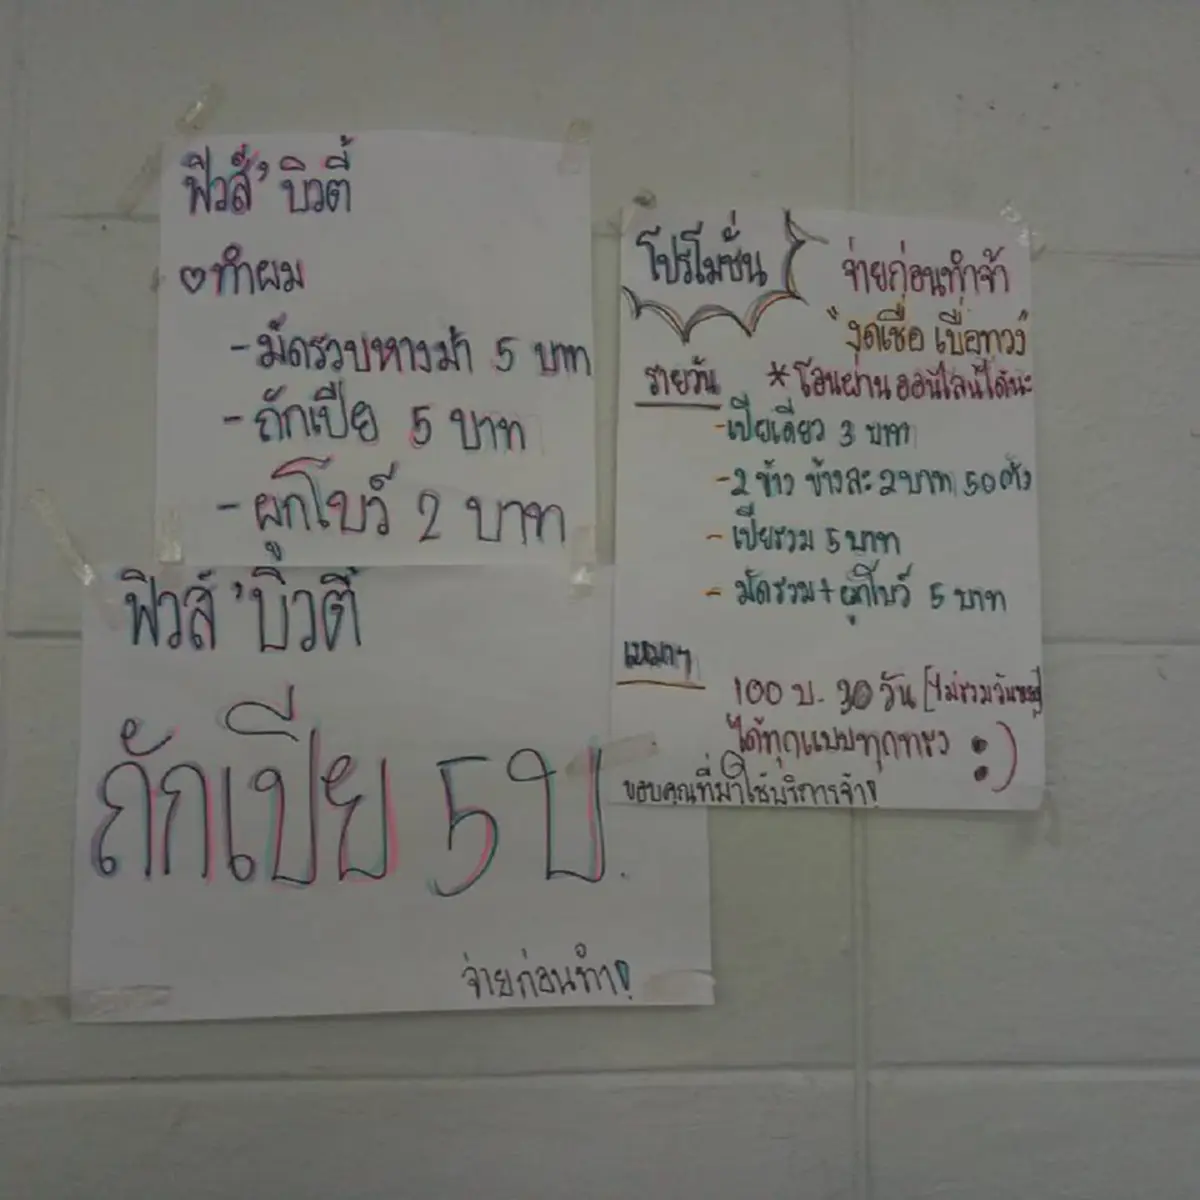 ฟิวส์' บิวตี้
♡ทำผม
- มัดรวบหางม้า 5 บาท
- ถักเปีย 5 บาท
- ผูกโบว์ 2 บาท
ฟิวส์ 'บิวตี้
ถักเปีย 5 บ.
จ่ายก่อนทำ!
โปรโมชั่น
จ่ายก่อนทำจ้า
"งดเชื่อ เบื่อทวง"
รายวัน
*โอนผ่านออนไลน์ได้นะ
- เปียเดี่ยว 3 บาท
- 2 ข้าง ข้างละ 2 บาท 50 ตัง
- เปียรวม 5 บาท
- มัดรวม + ผูกโบว์ 5 บาท
เหมาๆ
100 บ. 30 วัน [ไม่รวมวันหยุด]
ได้ทุกแบบทุกทรง :)
ขอบคุณที่มาใช้บริการจ้า!